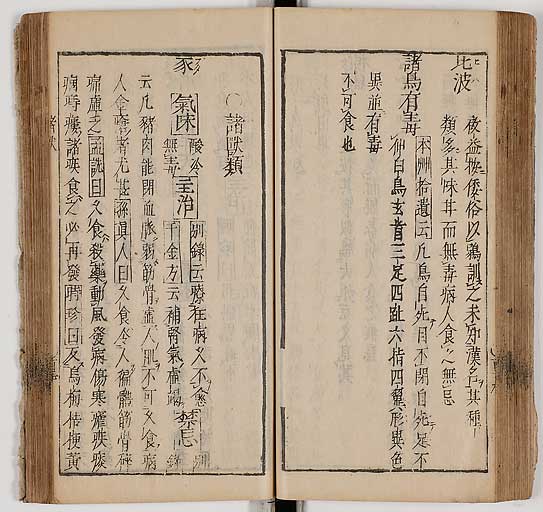 比波
按益按倭俗以鵯訓之未知漢名其種
類多其味甘而無毒病人食之無忌
諸鳥有毒
本艸拾遺云凡鳥自死目不閉自死足不
伸白鳥玄首三足四距六指四翼形異色
異並有毒
不可食也
○諸獸類
豕
氣味 酸冷無毒 主治 別錄云療狂病久不愈
千金方云補腎氣虛竭 禁忌 別錄
云凡豬肉能閉血脉弱筋骨虛人肌不可久食病
人金瘡者尤甚 孫真人曰 久食令人 筋骨碎
痛 之 孟詵曰 久食殺藥動風發病傷寒瘧疾痰
痼時癘諸疾食之必再發 時珍曰 反烏梅桔梗黃
諸獸